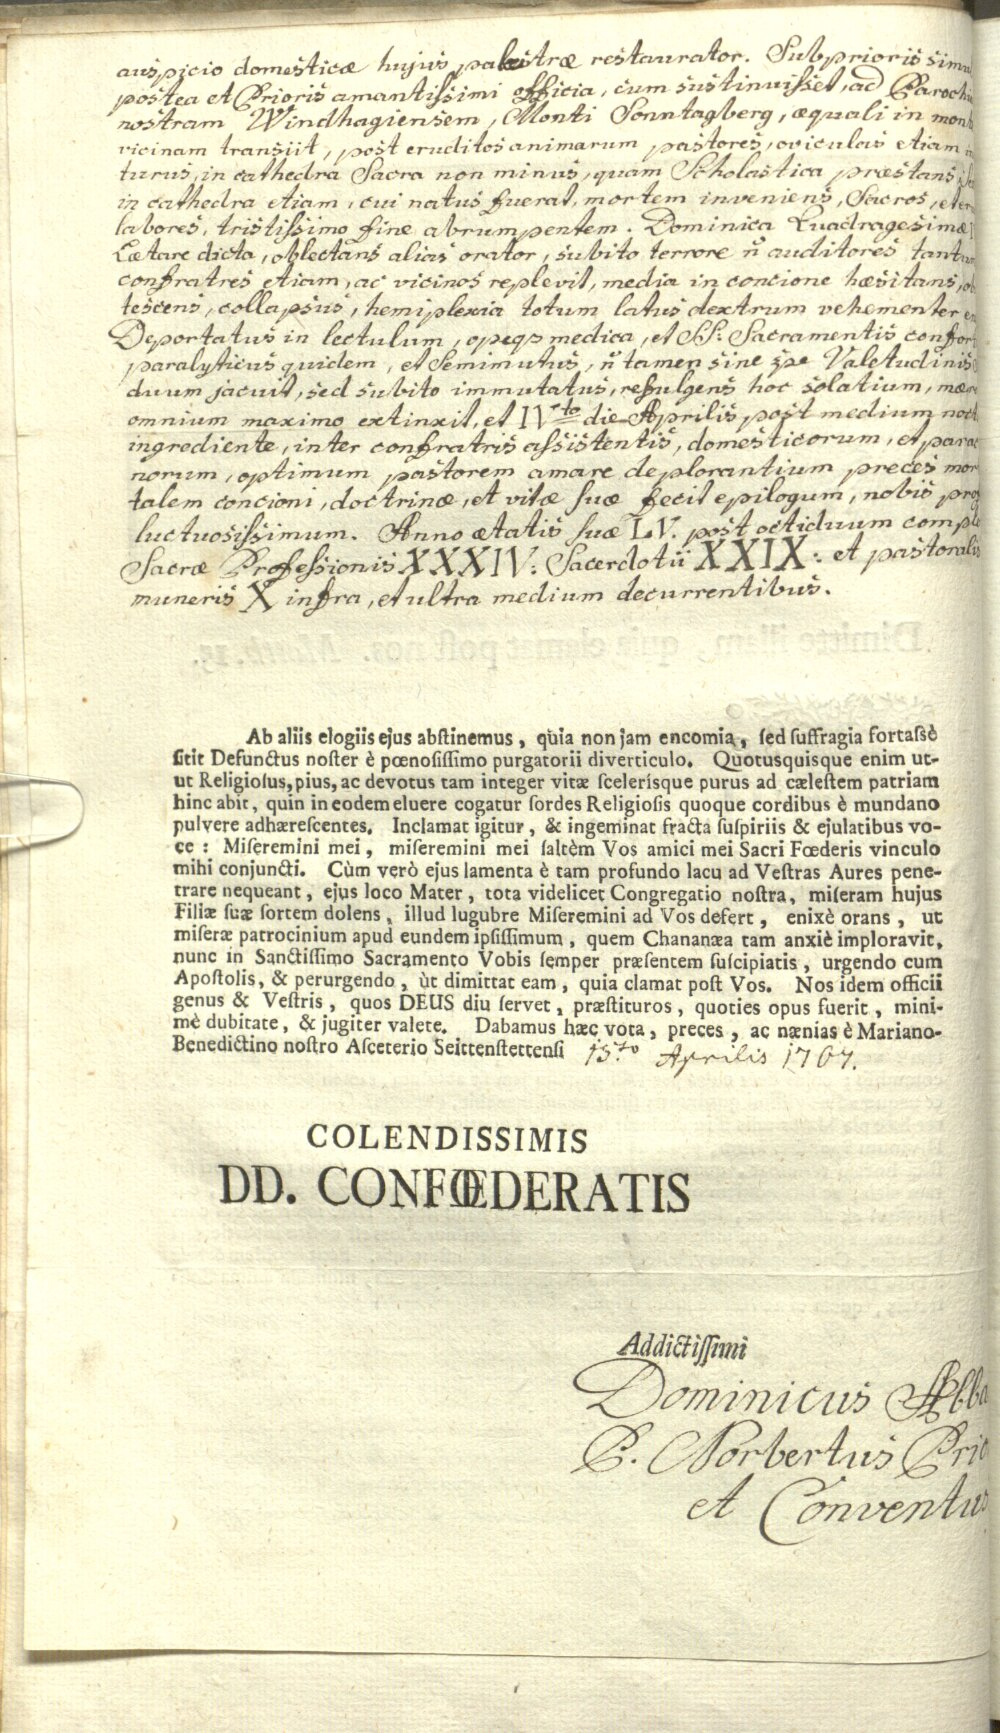 auspicio domesticæ hujus palæstræ restaurator. Subprioris simul
postea et Prioris amantissimi officia, cum sustinuisset, ad Parochi
nostram Windhagiensem, Monti Sonntagberg, æquali in mont
vicinam transiit, post eruditos animarum pastores, oviculas etiam in
turus, in cathedra Sacra non minus, quam Scholastica præstans,
in cathedra etiam, cui natus fuerat, mortem inveniens, Sacros, et er
labores, tristissimo fine abrumpentem. Dominica Quadragesimæ
Lætare dicta, oblectans alias orator, subito terrore n̄ auditores tantum
confratres etiam, ac vicinos replevit, media in concione hæsitans, ob
tescens, collapsus, hemiplexia totum latus dextrum vehementer en
Deportatus in lectulum, opeqз medica, et SS: Sacramentis confor
paralyticus quidem, et Semimutus, n̄ tamen sine spe Valetudinis
duum jacuit, sed subito immutatus, refulgens hoc solatium, mære
omnium maximo extinxit, et IV.to die Aprilis post medium noct
ingrediente, inter confratris assistentis, domesticorum, et paroc
norum, optimum pastorem amare deplorantium preces mor
talem concioni, doctrinæ, et vitæ suæ fecit epilogum, nobis pro
luctuosissimum. Anno ætatis suæ LV. post octiduum comple
Sacræ Professionis XXXIV: Sacerdotii XXIX: et pastoralis
muneris X infra, et ultra medium decurrentibus.
Ab aliis elogiis ejus abstinemus, quia non jam encomia, sed suffragia fortassè
sitit Defunctus noster è pœnosissimo purgatorii diverticulo. Quotusquisque enim ut-
ut Religiosus, pius, ac devotus tam integer vitæ scelerisque purus ad cælestem patriam
hinc abit, quin in eodem eluere cogatur sordes Religiosis quoque cordibus è mundano
pulvere adhærescentes. Inclamat igitur, & ingeminat fracta suspiriis & ejulatibus vo-
ce: Miseremini mei, miseremini mei saltèm Vos amici mei Sacri Fœderis vinculo
mihi conjuncti. Cùm verò ejus lamenta è tam profundo lacu ad Vestras Aures pene-
trare nequeant, ejus loco Mater, tota videlicet Congregatio nostra, miseram hujus
Filiæ suæ sortem dolens, illud lugubre Miseremini ad Vos defert, enixè orans, ut
miseræ patrocinium apud eundem ipsissimum, quem Chananæa tam anxiè imploravit,
nunc in Sanctissimo Sacramento Vobis semper præsentem suscipiatis, urgendo cum
Apostolis, & perurgendo, ùt dimittat eam, quia clamat post Vos. Nos idem officii
genus & Vestris, quos DEUS diu servet, præstituros, quoties opus fuerit, mini-
mè dubitate, & jugiter valete. Dabamus hæc vota, preces, ac nænias è Mariano-
Benedictino nostro Asceterio Seittenstettensi 15.to Aprilis 1767.
COLENDISSIMIS
DD. CONFŒDERATIS
Addictissimi
Dominicus Abba
P. Norbertus Prio
et Conventus